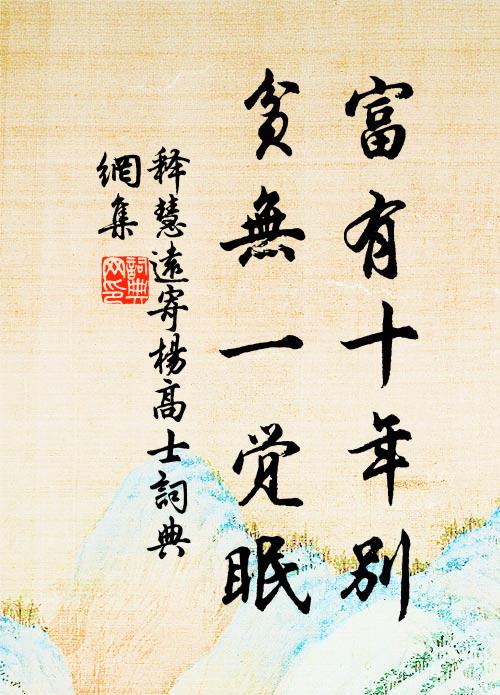 富有十年別
貧無一觉眠
释慧遠寄楊高士詞典
網集
詞典
网印